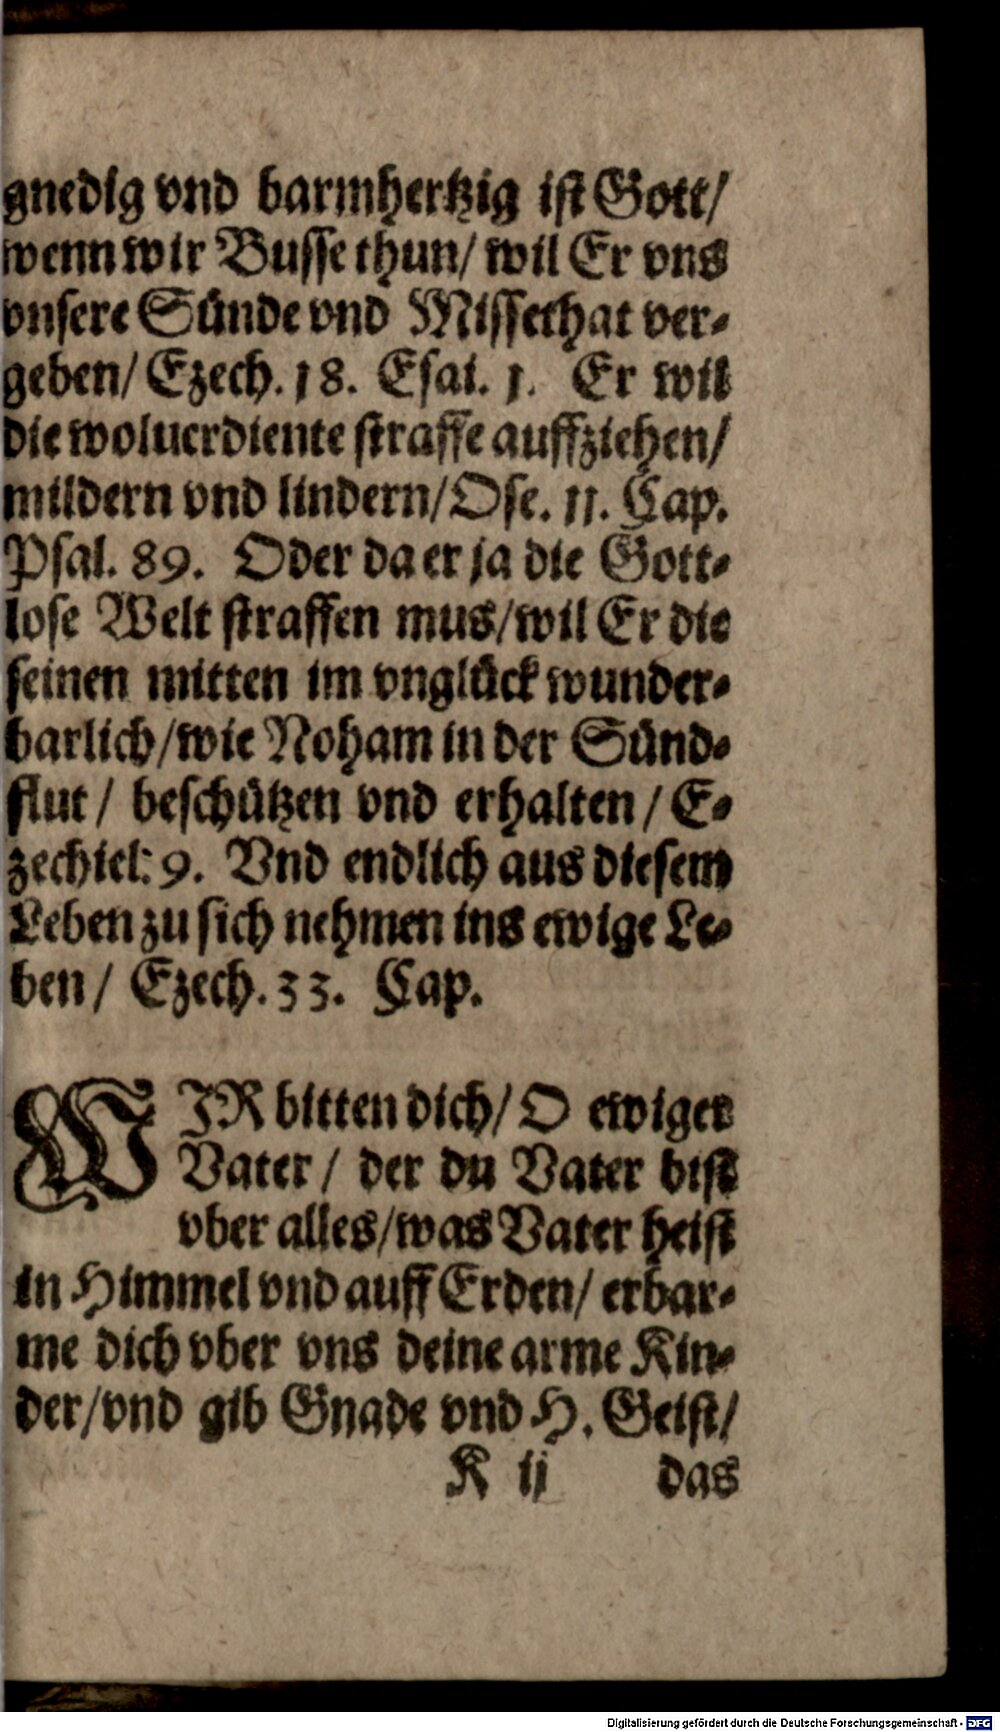 gnedig vnd barmhertzig ist Gott/
wenn wir Busse thun/ wil Er vns
vnsere Sünde vnd Missethat ver-
geben/ Ezech. 18. Esai. 1. Er wil
die woluerdiente straffe auffziehen/
mildern vnd lindern/ Ose. 11. Cap.
Psal. 89. Oder da er ja die Gott-
lose Welt straffen mus/ wil Er die
seinen mitten im vnglück wunder-
barlich/ wie Noham in der Sünd-
flut/ beschützen vnd erhalten/ E-
zechiel: 9. Vnd endlich aus diesem
Leben zu sich nehmen ins ewige Le-
ben/ Ezech. 33. Cap.
WIR bitten dich/ O ewiger
Vater/ der du Vater bist
vber alles/ was Vater heist
in Himmel vnd auff Erden/ erbar-
me dich vber vns deine arme Kin-
der/ vnd gib Gnade vnd H. Geist/
K ij das
Digitalisierung gefördert durch die Deutsche Forschungsgemeinschaft - DFG